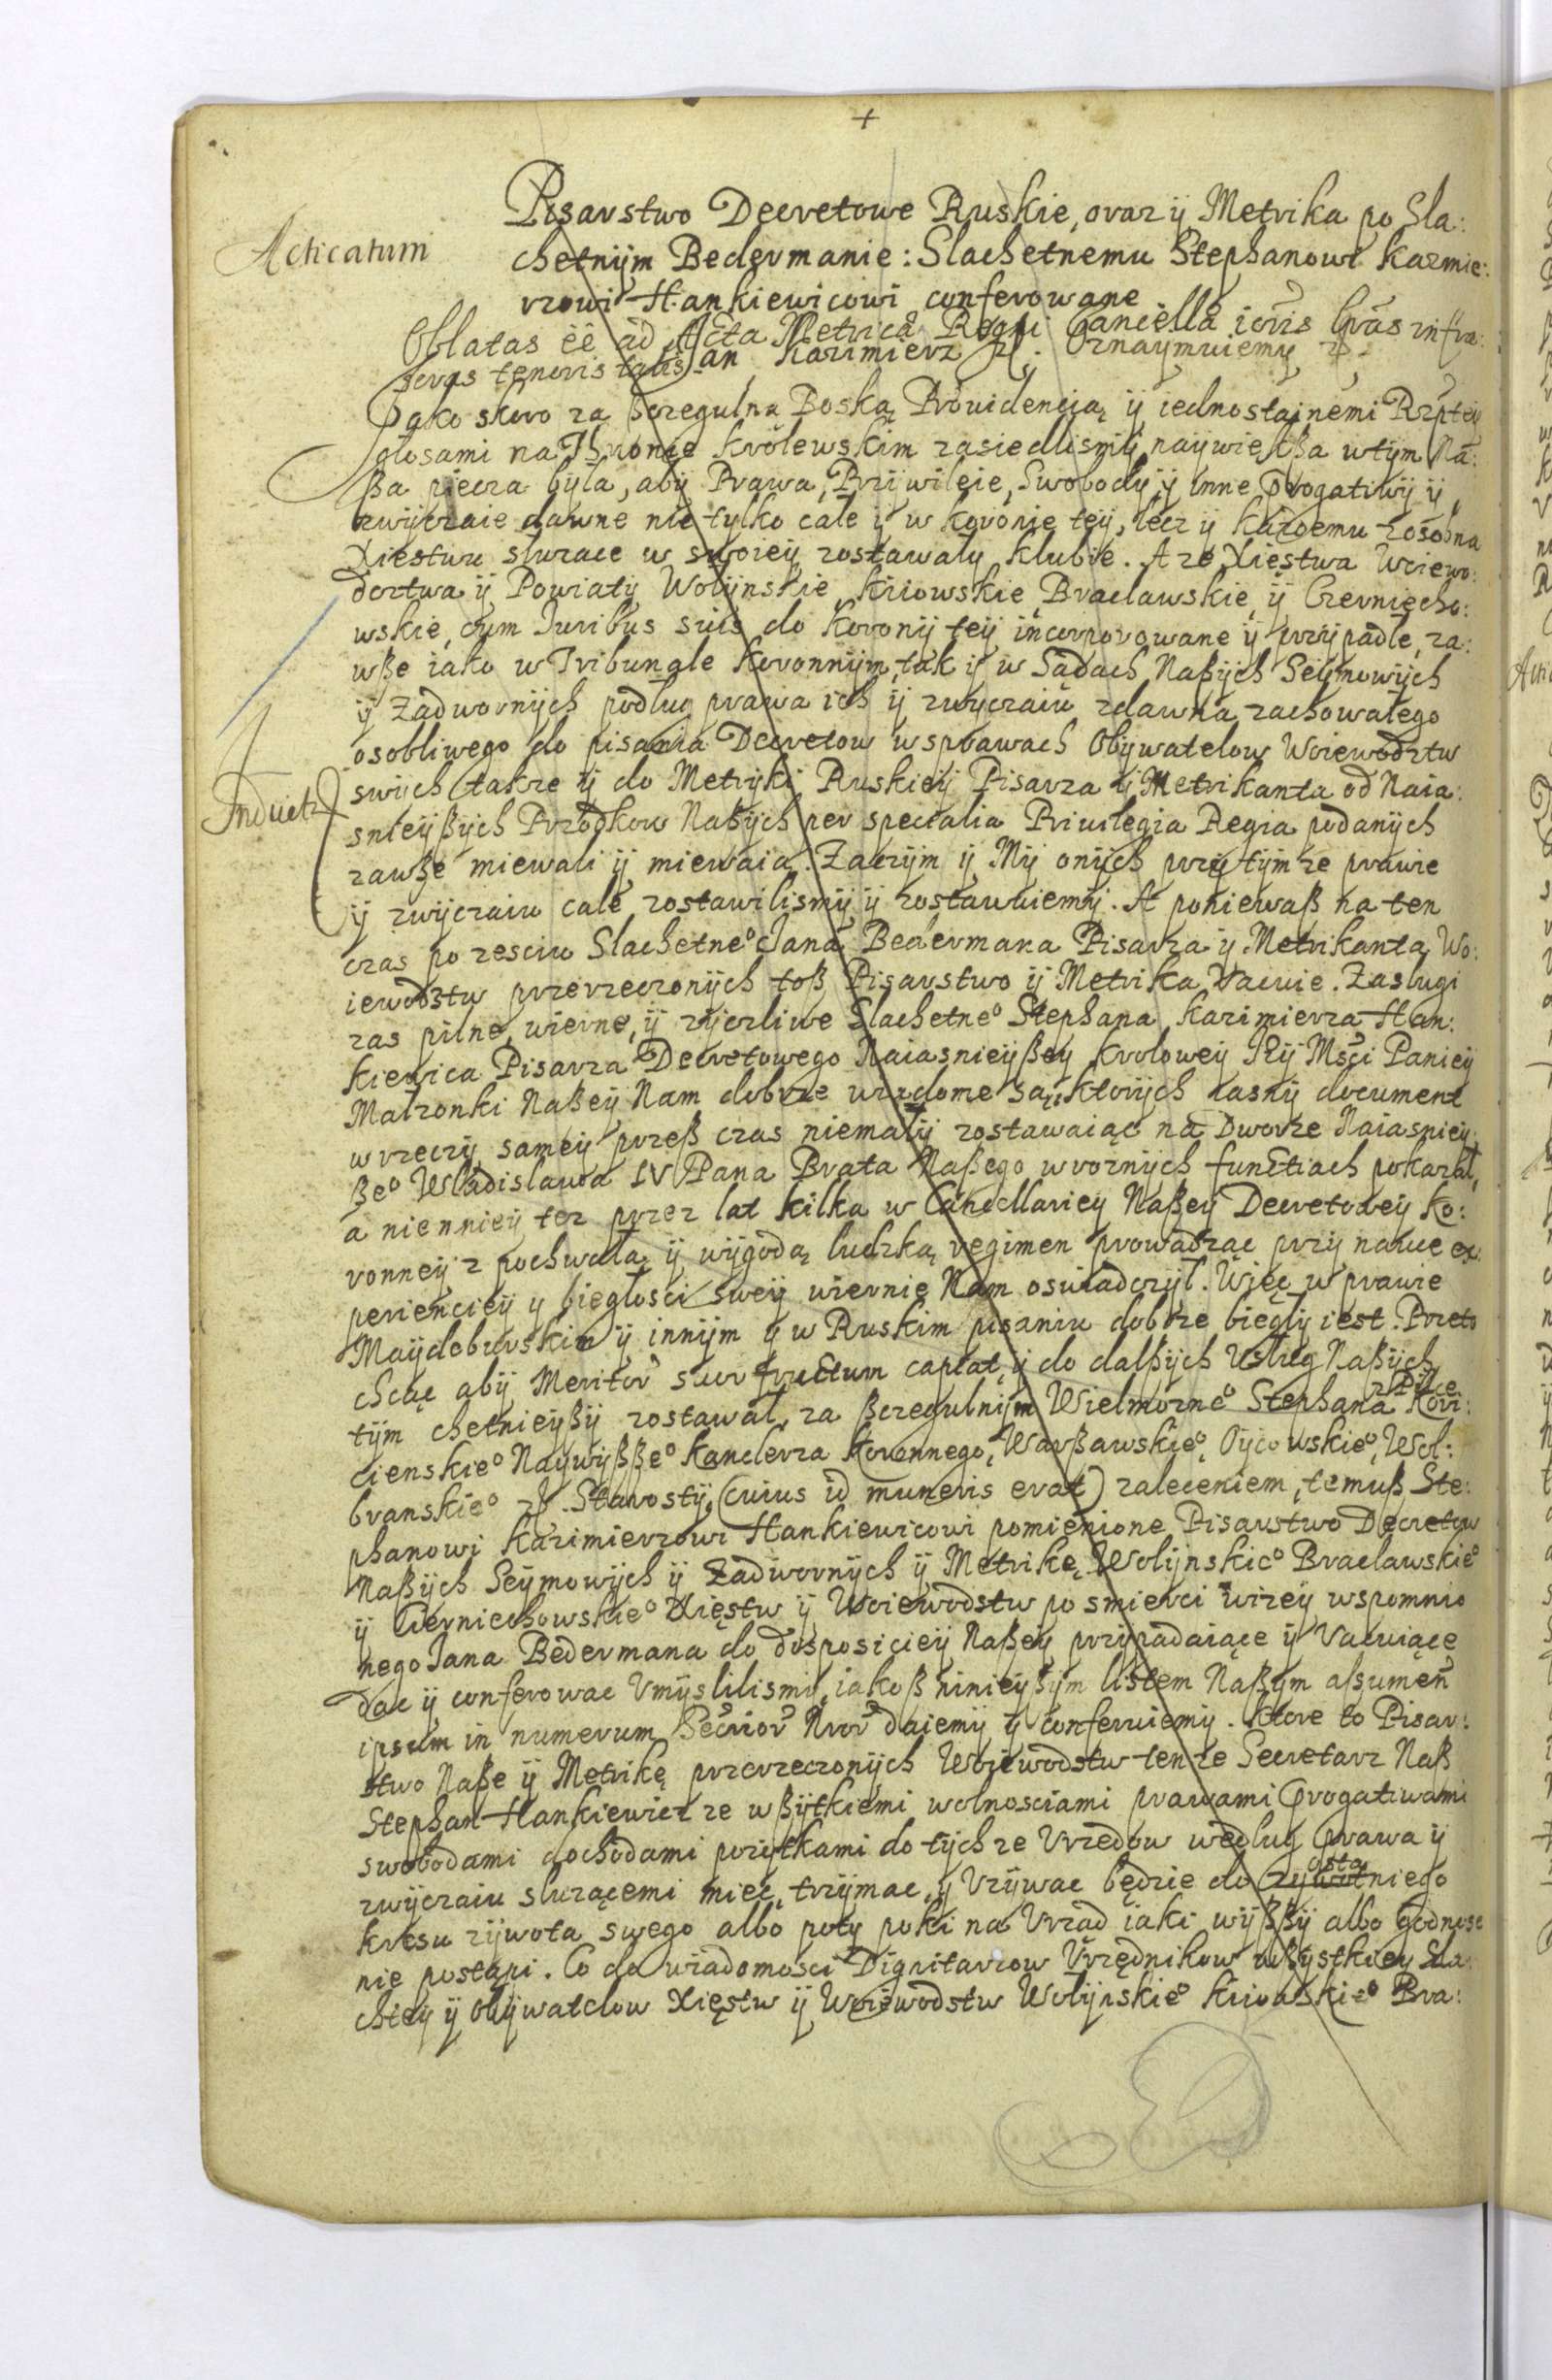 +
Pisarstwo Decretowe Ruskie, oraz ij Metrika po Sla:
Acticatum
chetnijm Bedermanie: Slachetnemu Stephanowi Kazmie:
rzowi Hankiewicowi conferowane
Oblatas eē ad Acta Metrices Regni Cancella ioris Lrās infra:
scrās tenoris talis Jan Kazimierz Oznaymuiemy
Jako skoro za szczegulną Boską Prowidencią ij iednostajnemi Rzptey
glosami na Thronie krolewskim zasiedlismij, naijwiekßa wtym Na:
ßa piecza była, abij Prawa, Prziwileie, Swobody, ij inne Prerogatiwij ij
zwijczaie dawne nie tylko cale ij w koronie teij, lecz ij każdemu zosobna
Xięstwu służace w swoieij zostawaly klubie. A że Xięstwa Woiewo:
dztwa ij Powiatij Wolijnskie, kiiowskie, Braclawskie, ij Czerniecho:
wskie, cum Iuribus suis do koronij teij incorporowane ij przijpadłe, za:
wße iako w Tribunale koronnijm, tak ij w Sądach Naßijch Seijmowijch
ij Zadwornijch podlug prawa ich ij zwyczaiu zdawna zachowałego
osobliwego do pisania Decretow w sprawach Obijwatelow Woiewodztw
Induct
swijch, także ij do Metrijki Ruskieij Pisarza ij Metrikanta od Naia:
snieijßijch Przodkow Naßijch per specialia Priuilegia Regia podanijch
zawße miewali ij miewaią. Zaczijm ij Mij onijch przij tijmże prawie
ij zwijczaiu cale zostawilismij ij zostawuiemij. A poniewaß na ten
czas po zesciu Slachetne° Jana Bedermana Pisarza ij Metrikanta Wo:
iewodstw przerzeczonijch toß Pisarstwo ij Metrika Vacuie. Zasługi
zas pilne, wierne, ij zijczliwe Slachetne° Stephana Kazimierza Han:
kiewica Pisarza Decretowego Naiasnieijßey krolowey Ieij Msci Panieij
Małzonki Naßeij Nam dobrze wiadome są, ktorijch iasnij document
w rzeczij sameij przeß czas niemałij zostawaiąc na Dworze Naiasnieij:
ße° Władislawa IV Pana Brata Naßego w roznijch functiach pokazał,
a niemnieij tez przez lat kilka w Cancellarieij Naßeij Decretoweij ko:
ronneij z pochwałą ij wijgodą ludzką regimen prowadząc przij nauce ex:
periencieij y biegłosci sweij wiernie Nam oswiadczijł. Więc w prawie
Maijdeburskim ij innijm ij w Ruskim pisaniu dobrze biegłij iest. Przeto
chcąc abij Meritor̃ suor̃ fructum capiat, ij do dalßijch Vsług Naßijch
tijm chętnieijßij zostawał, za ßczegulnijm Wielmożne° Stephana z Pilce Kori:
cienskie° Naijwijßße° Kanclerza koronnego, Warßawskie°, Oijcowskie°, Wol:
branskie° Starostij, (cuius id muneris erat) zaleceniem, temuß Ste:
phanowi Kazimierzowi Hankiewicowi pomienione Pisarstwo Decretow
Naßijch Seijmowijch ij Zadwornijch ij Metrikę Wolijnskie° Braclawskie°
ij Czerniechowskie° Xięstw ij Woiewodstw po smierci wizeij wspomnio
nego Jana Bedermana do disposicieij Naßeij przijpadaiące ij Vacuiące
dac ij conferowac Vmijslilismij, iakoß ninieijßijm listem Naßijm assumen̄
ipsum in numerum Secrior̃ Nror̃ daiemij ij conferuiemij. Ktore to Pisar:
stwo Naße ij Metrikę przerzeczonijch Woiewodstw tenże Secretarz Naß
Stephan Hankiewicz ze wßijtkiemi wolnosciami prawami Prerogatiwami
swobodami dochodami pożijtkami do tijchże Vrzedow według Prawa ij
zwijczaiu służącemi miec, trzijmac, ij Vżijwac będzie do ostatniego
kresu żijwota swego albo potij poki na Vrząd iaki wijßßij albo godnosc
nie postąpi. Co do wiadomosci Dignitarzow Vrzędnikow wßijstkieij Sla
chteij ij Obijwatelow Xięstw ij Woiewodstw Wolijnskie° kiiowskie° Bra: